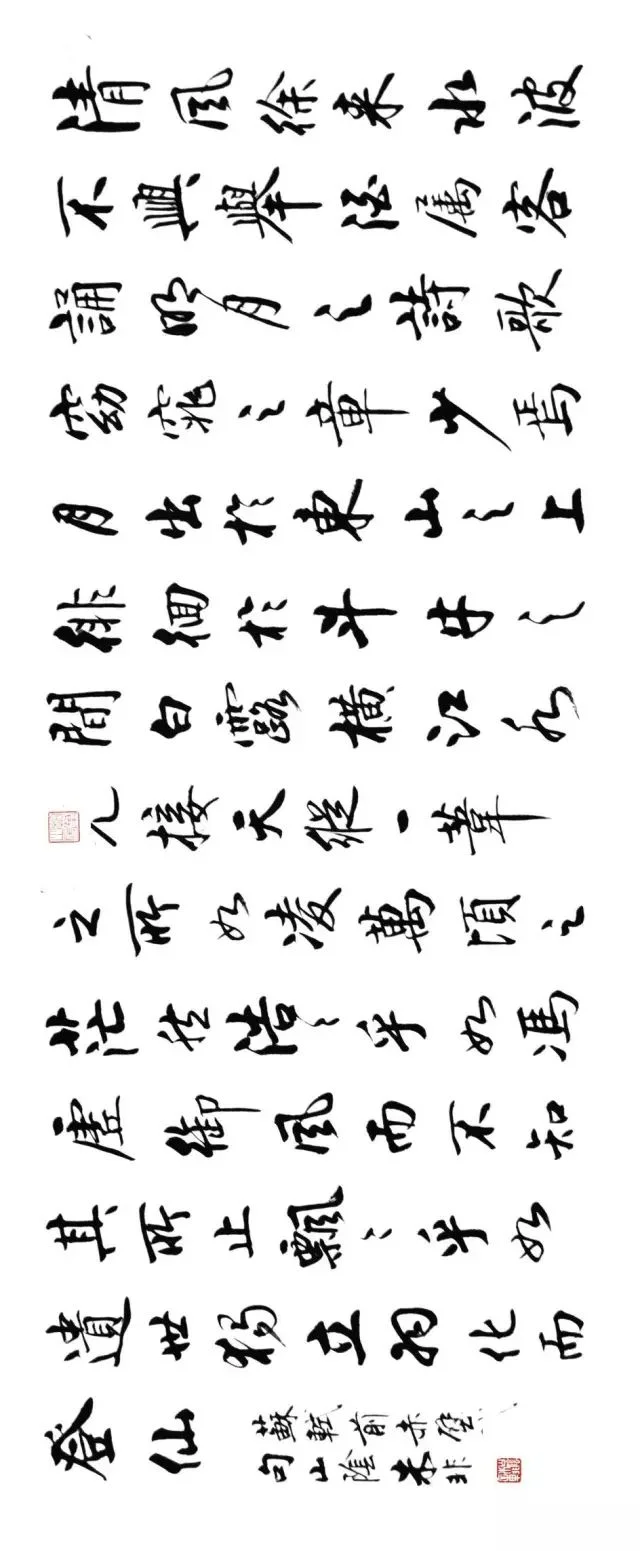 清風徐來水波
不興舉酒屬客
誦明月之詩歌
窈窕之章少焉
月出於東山之上
徘徊於斗牛之
間白露橫江水
光接天縱一葦
之所如凌萬頃之
茫然浩々乎如馮
虛御風而不知
其所止飄々乎如
遺世獨立羽化而
登仙
蘇軾前赤壁
句山陰朱非